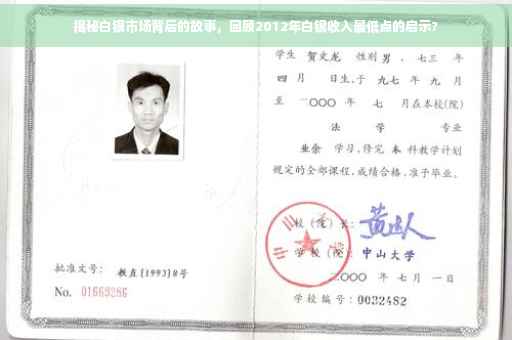 揭秘白银市场背后的故事，回顾2012年白银收入最低点的启示?
学生 贺文龙 性别 男 、七三 年
四 月 日生,于 九七 年 九 月
至 二〇〇〇 年 七 月在本校(院)
法 学 专业
业余 学习,修完 本 科教学计划
规定的全部课程,成绩合格,准予毕业。
校 (院) 长:
学 校 (院): 中山大学
二〇〇〇 年 七 月 一 日
批准文号: 教直[1993]8号
No. 01663286
学校编号: 0032482